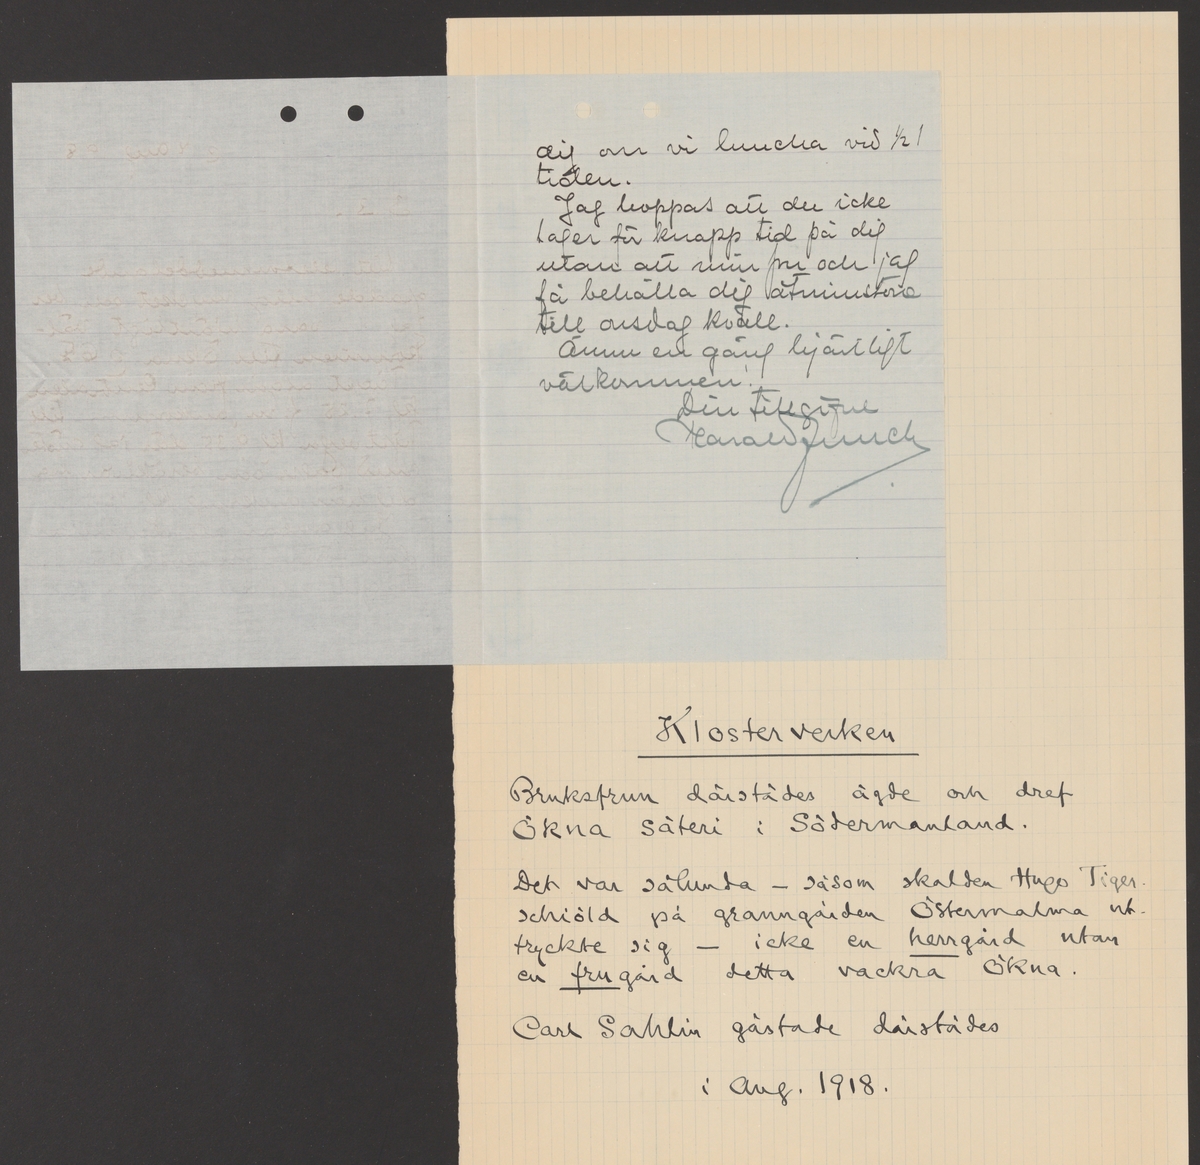 dig om vi luncha vid ½ 1
tiden.
Jag hoppas att du icke
tager för knapp tid på dig
utan att min fru och jag
få behålla dig åtminstone
till onsdag kväll.
Ännu en gång hjärtligt
välkommen!
Din tillgifne
Harald
Klosterverken
Bruksfrun därstädes ägde och dref
Ökna säteri i Södermanland.
Det var sålunda – såsom skalden Hugo Tiger-
schiöld på granngården Östermalma ut-
tryckte sig – icke en herrgård utan
en frugård detta vackra Ökna.
Carl Sahlin gästade därstädes
i Aug. 1918.